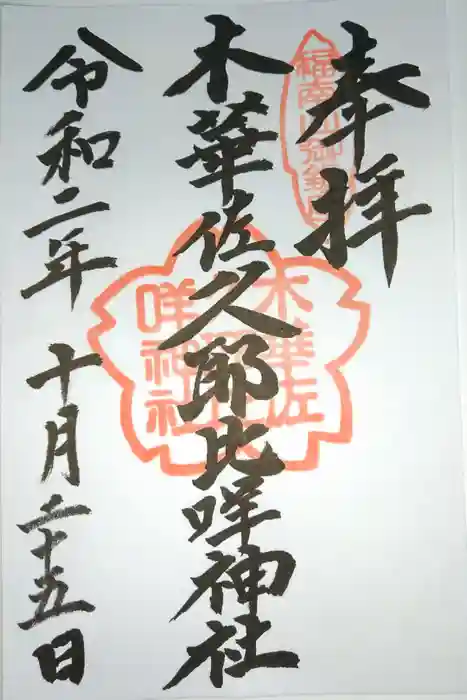 奉拝
木華佐久耶比咩神社
令和二年 十月二十五日
木華佐
咩神社